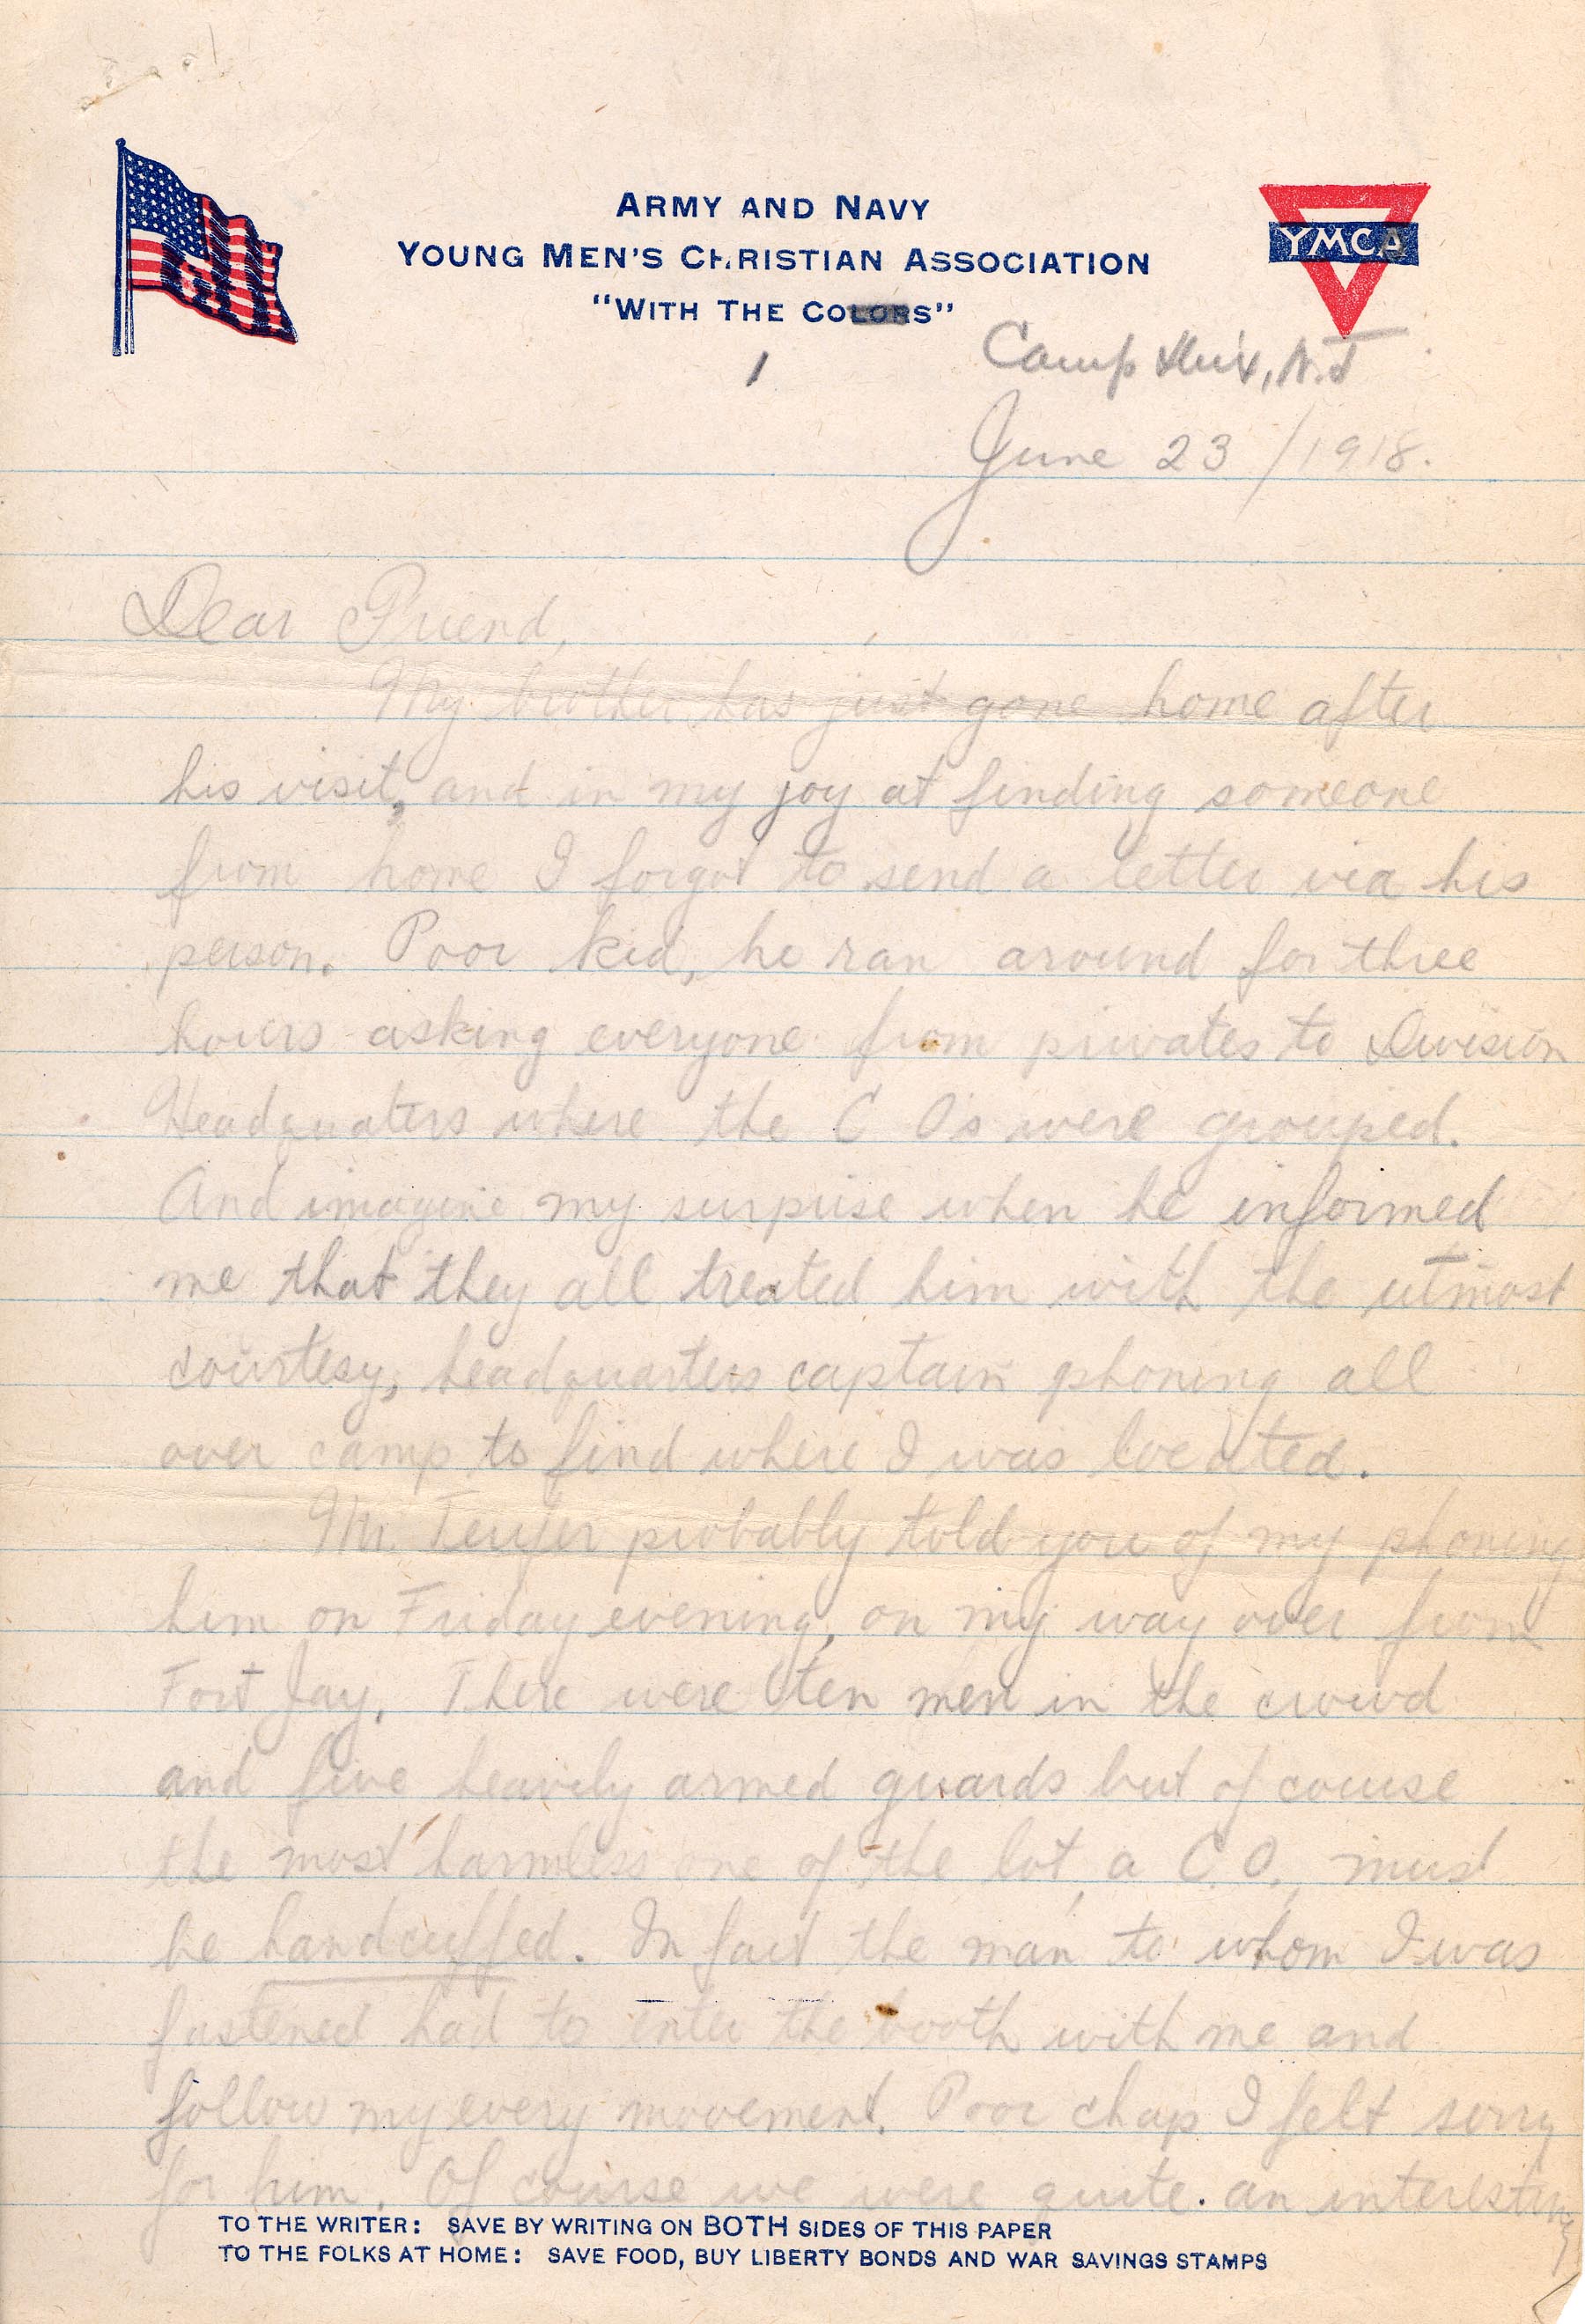 ARMY AND NAVY
YOUNG MEN'S CHRISTIAN ASSOCIATION
"WITH THE COLORS"
YMCA
1
Camp Dix, N.J
June 23 / 1918.
Dear Friend,
My brother has just gone home after
his visit, and in my joy at finding someone
from home I forgot to send a letter via his
person. Poor kid, he ran around for three
hours asking everyone from privates to Division
Headquaters where the C O's were grouped.
And imagine my surprise when he informed
me that they all treated him with the utmost
courtesy, headquarters captain phoning all
over camp to find where I was located.
Mr. probably told you of my phoning
him on Friday evening, on my way over from
Fort Jay. There were ten men in the crowd
and five heavily armed guards but of course
the most harmless one of the lot, a C.O., must
be handcuffed. In fact the man to whom I was
fastened had to enter the booth with me and
follow my every movement. Poor chap I felt sorry
for him. Of course we were quite an interesting
TO THE WRITER: SAVE BY WRITING ON BOTH SIDES OF THIS PAPER
TO THE FOLKS AT HOME: SAVE FOOD, BUY LIBERTY BONDS AND WAR SAVINGS STAMPS